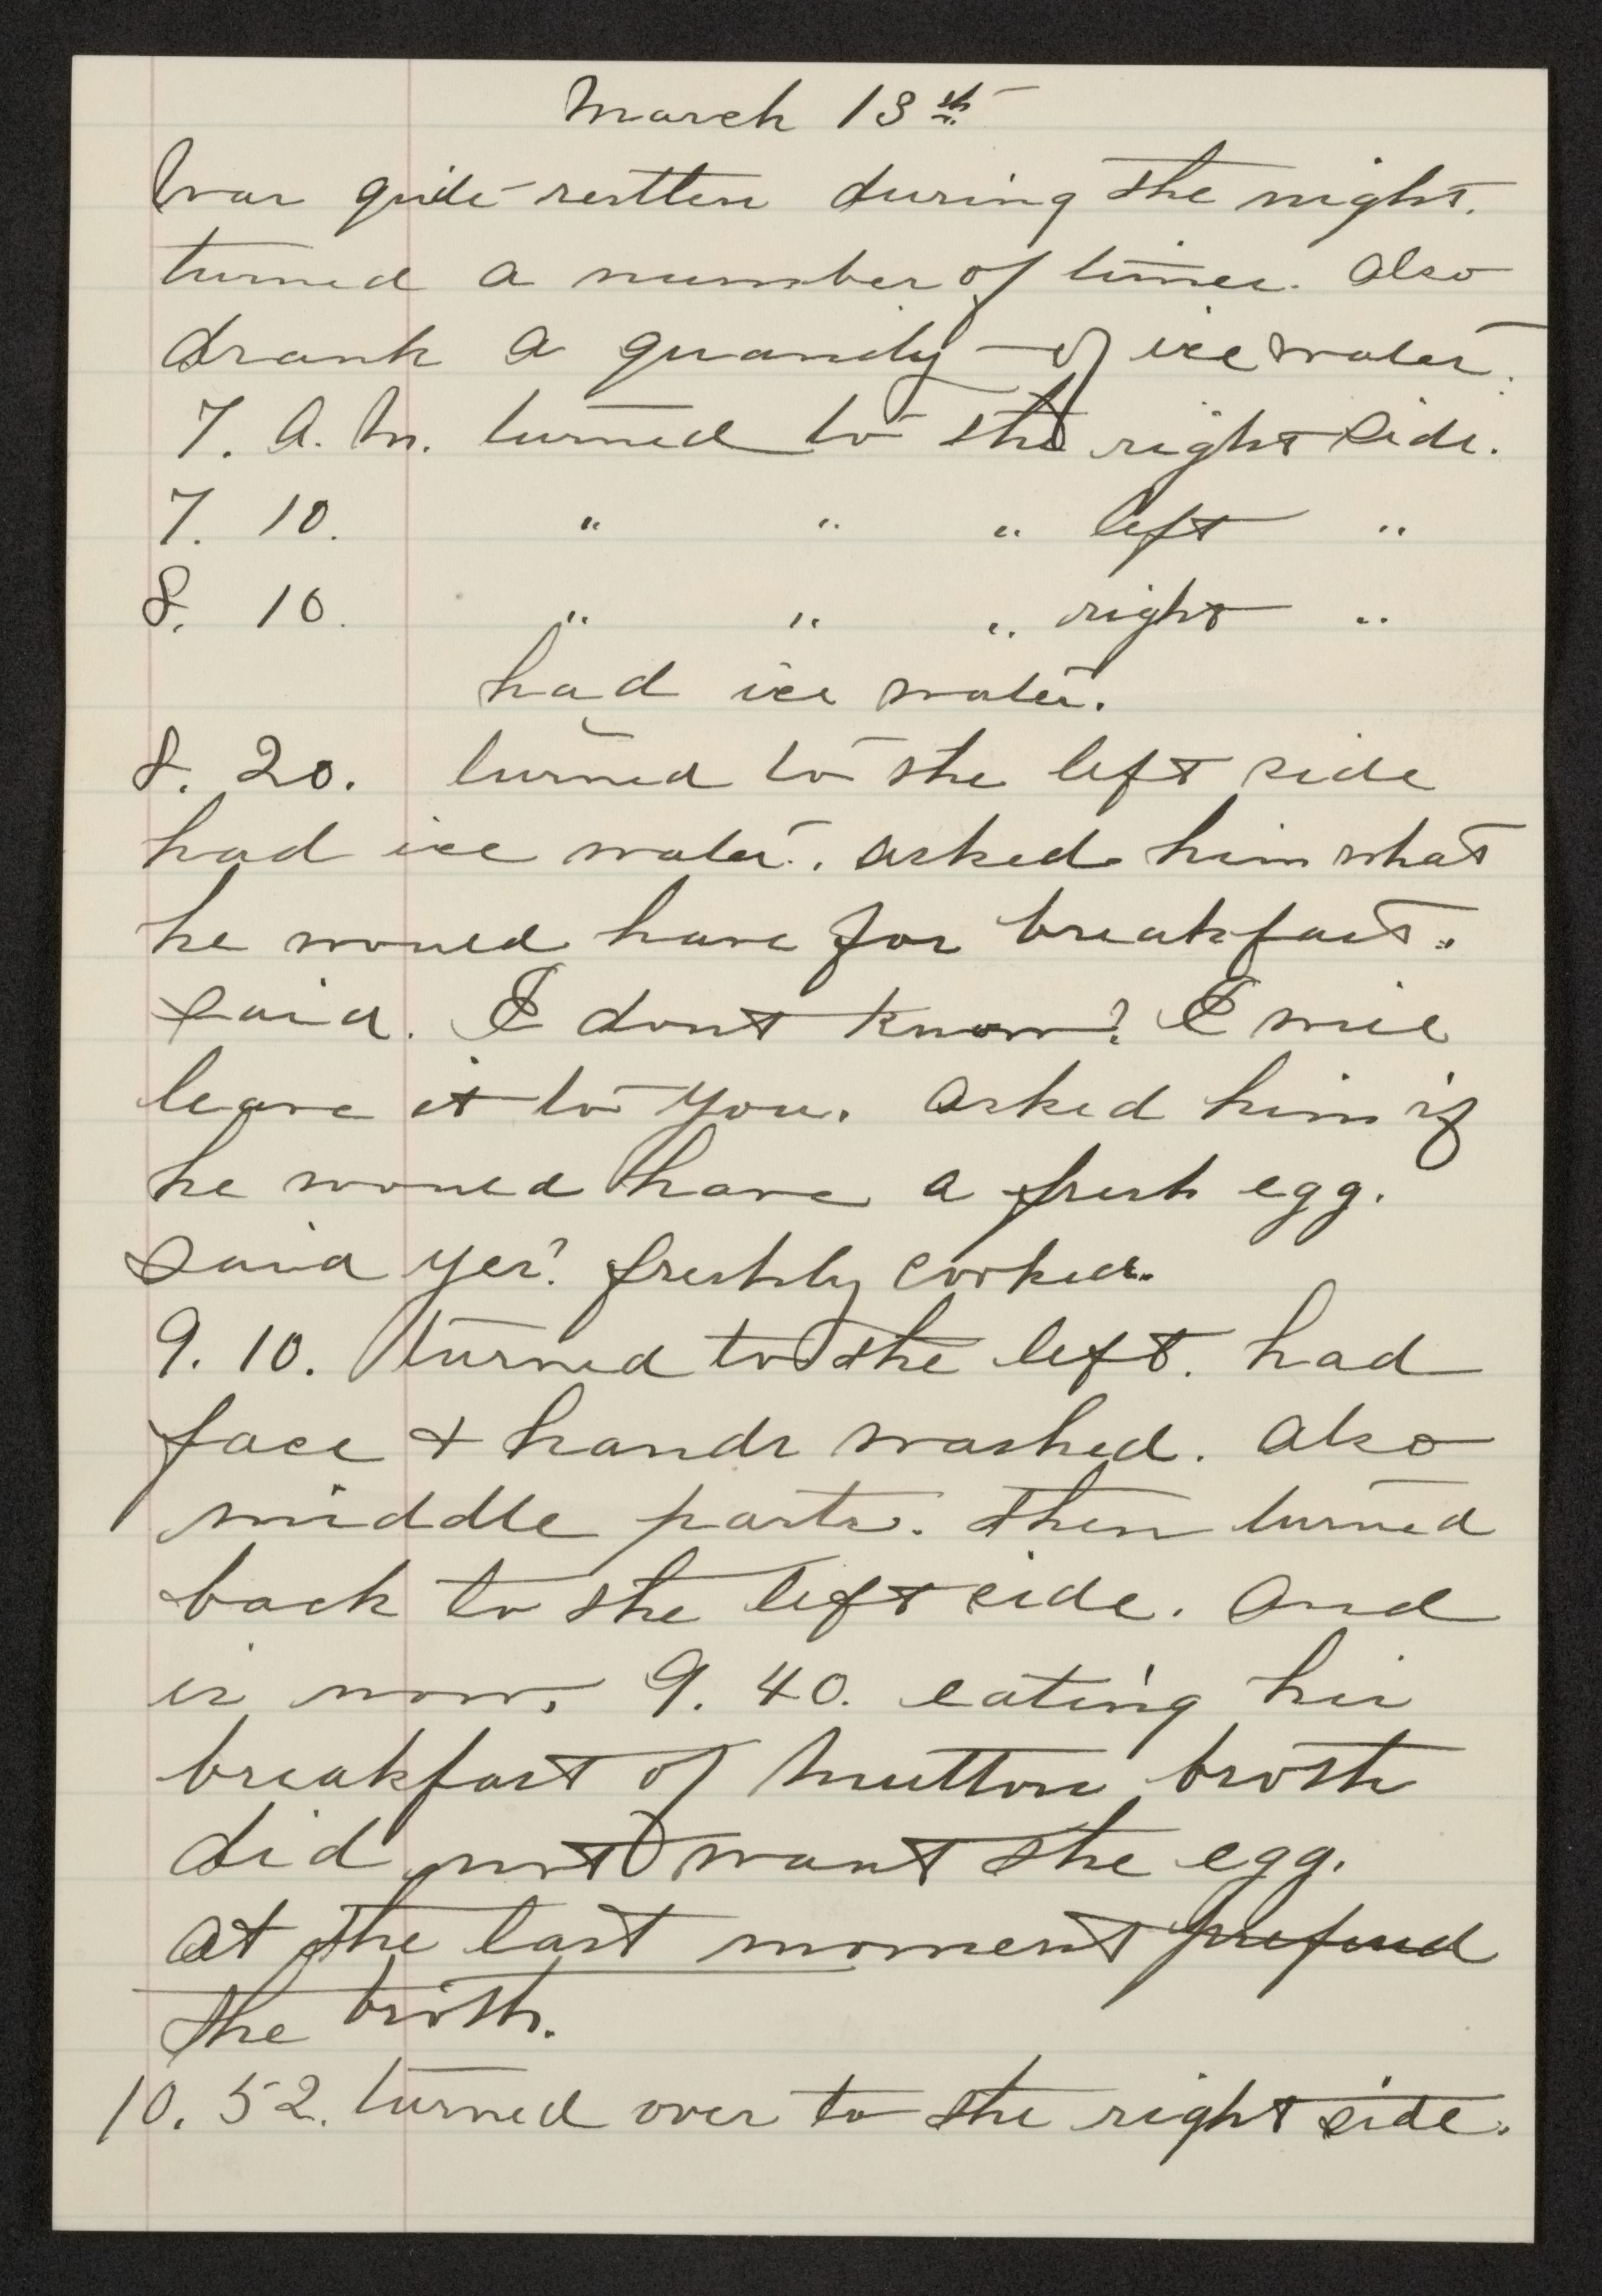 March 13th
Was quite restless during the night.
turned a number of times. Also
drank a quanity of ice water.
7. A. M. turned to the right side.
7. 10. " " " left "
8. 10. " " " right "
had ice water.
8. 20. turned to the left side
had ice water. asked him what
he would have for breakfast.
said. I dont know? I will
leave it to you. Asked him if
he would have a fresh egg.
said yes? freshly cooked.
9. 10. turned to the left. had
face + hands washed. Also
middle parts. then turned
back to the left side. And
is now, 9. 40. eating his
breakfast of Mutton broth
did not want the egg.
at the last moment prefered
the broth.
10. 52. turned over to the right side.